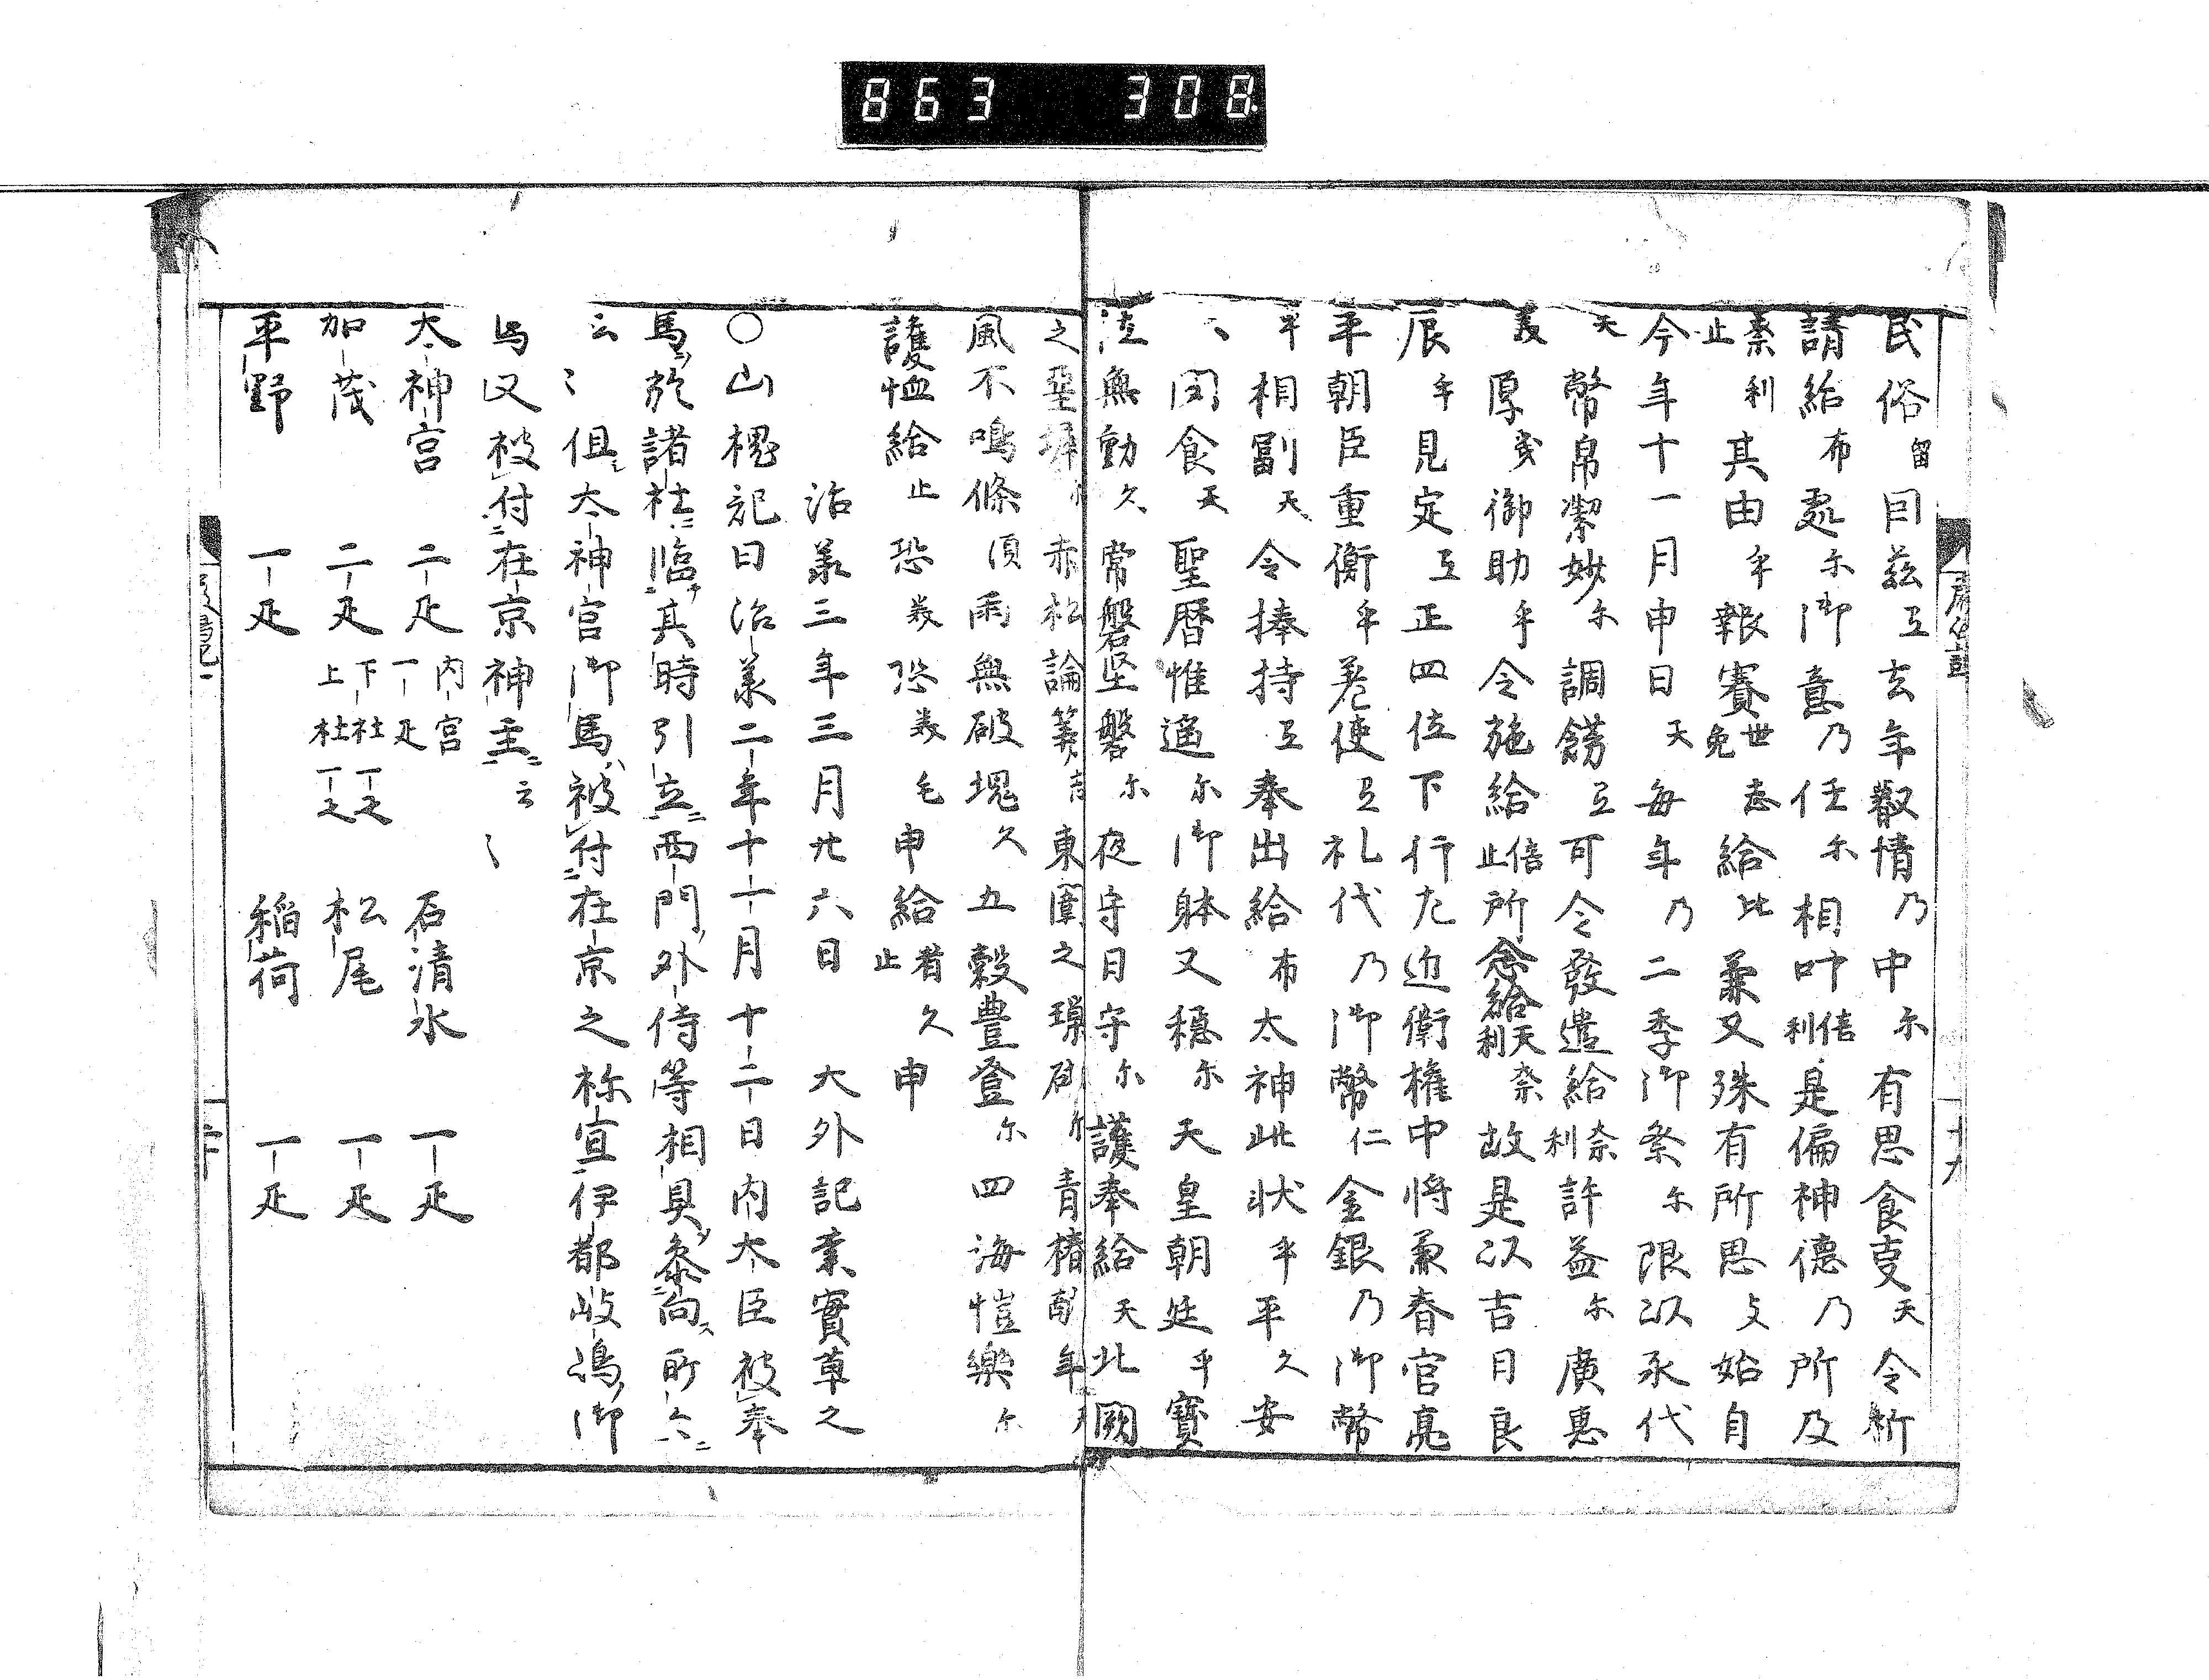 863 308
民俗留因茲互去年叡情乃中尓有思食支天令祈
請給布処尓御意乃任尓相叶倍利是偏神徳乃所及
奈利止其由乎報賽世免志給比兼又殊有所思支始自
今年十一月申日天毎年乃二季御祭尓限以永代
天幣帛潔妙尓調餝互可令發遣給奈利許益尓廣惠
義厚支御助乎令施給倍止所念給天利奈故是以吉日良
辰乎見定互正四位下行左近衛権中将兼春宮亮
平朝臣重衡乎差使互礼代乃御幣仁金銀乃御幣
乎相副天令捧持互奉出給布太神此状乎平久安
久聞食天聖暦惟遥尓御躰又穏尓天皇朝廷乎寶
位無動久常磐堅磐尓夜守日守尓護奉給天北闕
之 赤松論 東園之 青椿 年
風不鳴條須雨無破塊久五穀豊登尓四海愷樂尓
護恤給止恐美恐美毛申給者久止申
治羕三年三月廿六日 大外記業實草之
〇山槐記曰治羕二年十一月十二日内大臣被奉
馬於諸社臨其時引立西門外侍等相具参向所々
云々但太神宮御馬被付在京之祢宜伊都岐嶋御
馬又被付在京神主云々
太神宮 二疋 内宮一疋 石清水 一疋
加茂 二疋 下社一疋 上社一疋 松尾 一疋
平野 一疋 稲荷 一疋
十九
二十